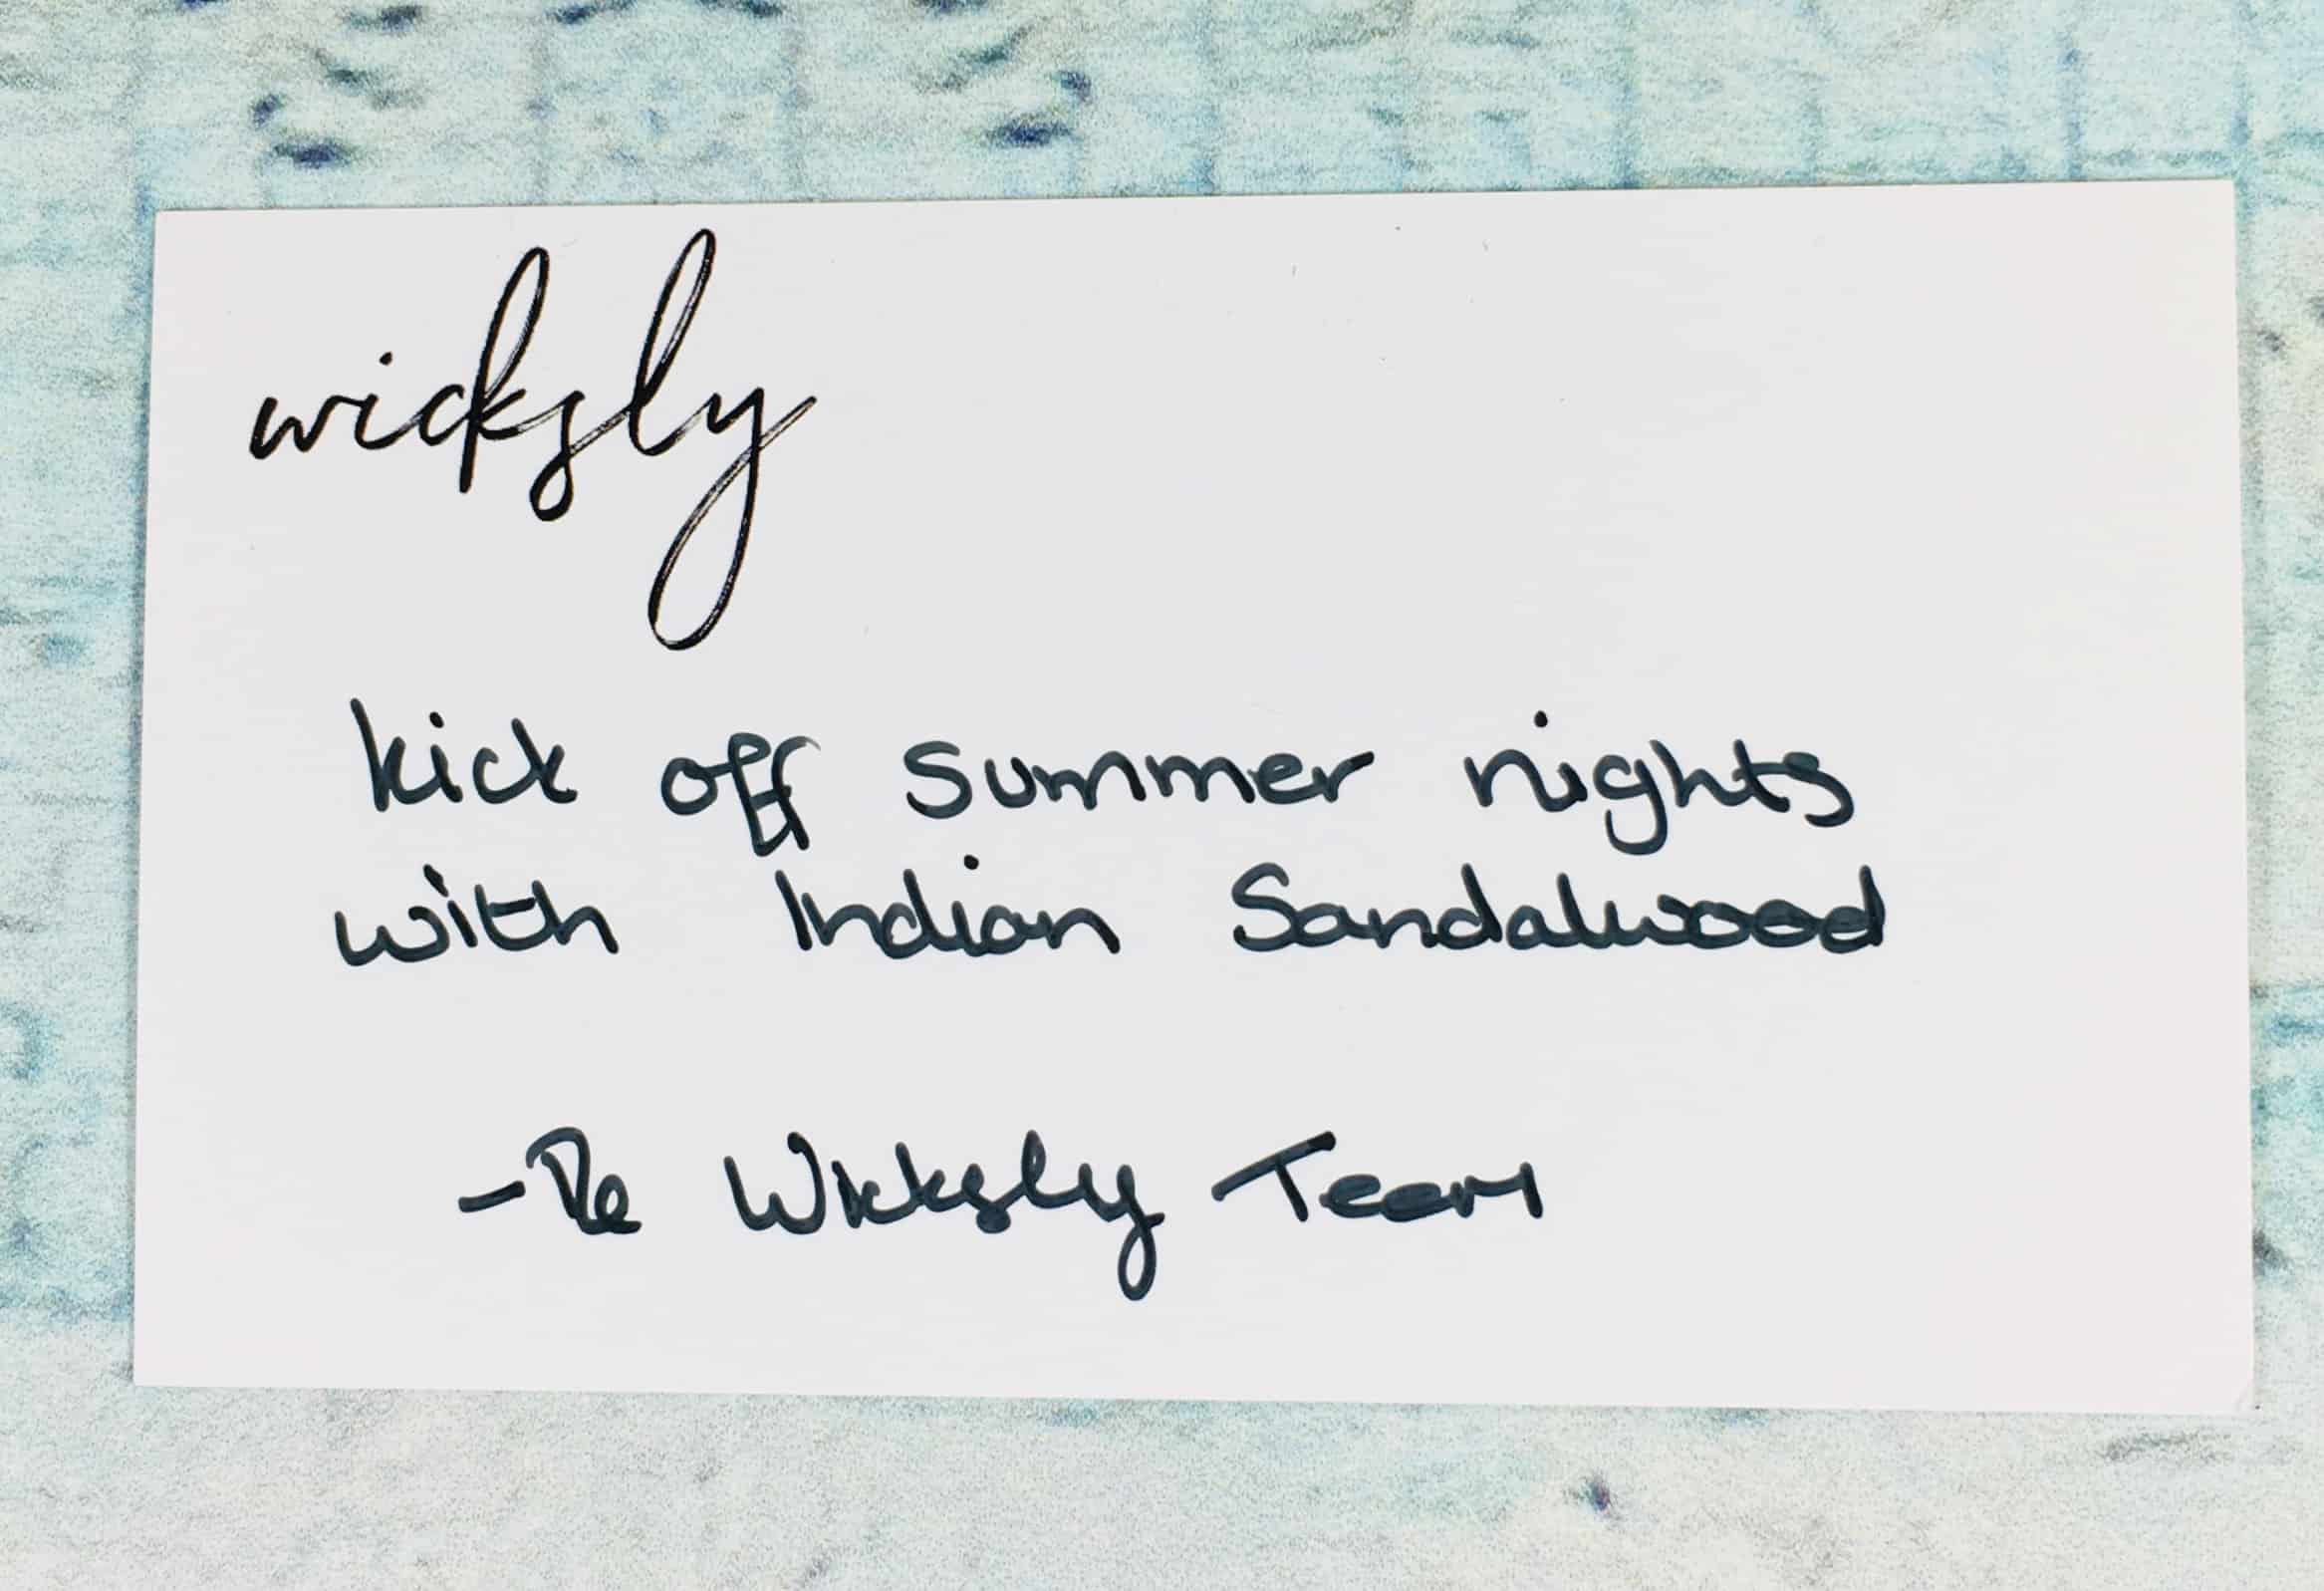 wicksly
kick off summer nights
with Indian Sandalwood
- The Wicksly Team